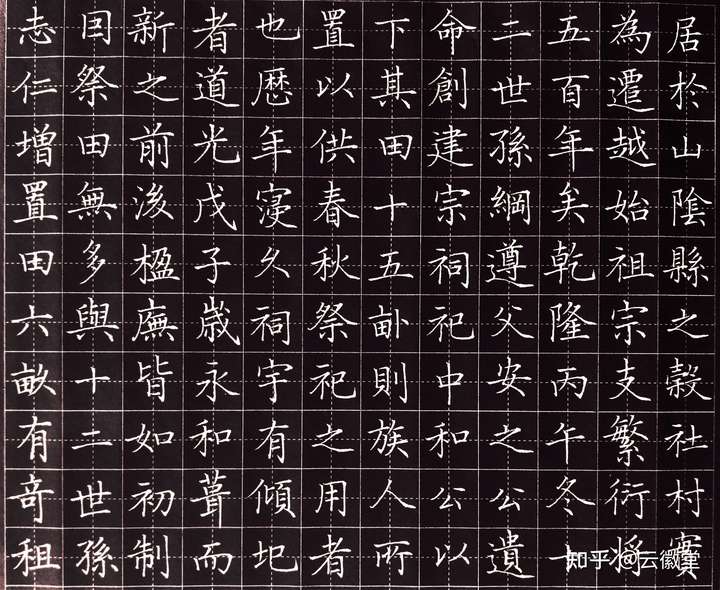 居於山陰縣之穀社村實
為遷越始祖宗支繁衍将
五百年矣乾隆丙午冬十
二世孫綱遵父安之公遺
命創建宗祠祀中和公以
下其田十五畝則族人所
置以供春秋祭祀之用者
也歷年寖久祠宇有傾圮
者道光戊子歲永和葺而
新之前後楹廡皆如初制
因祭田無多與十二世孫
志仁增置田六畝有奇租
知乎 @云徽堂